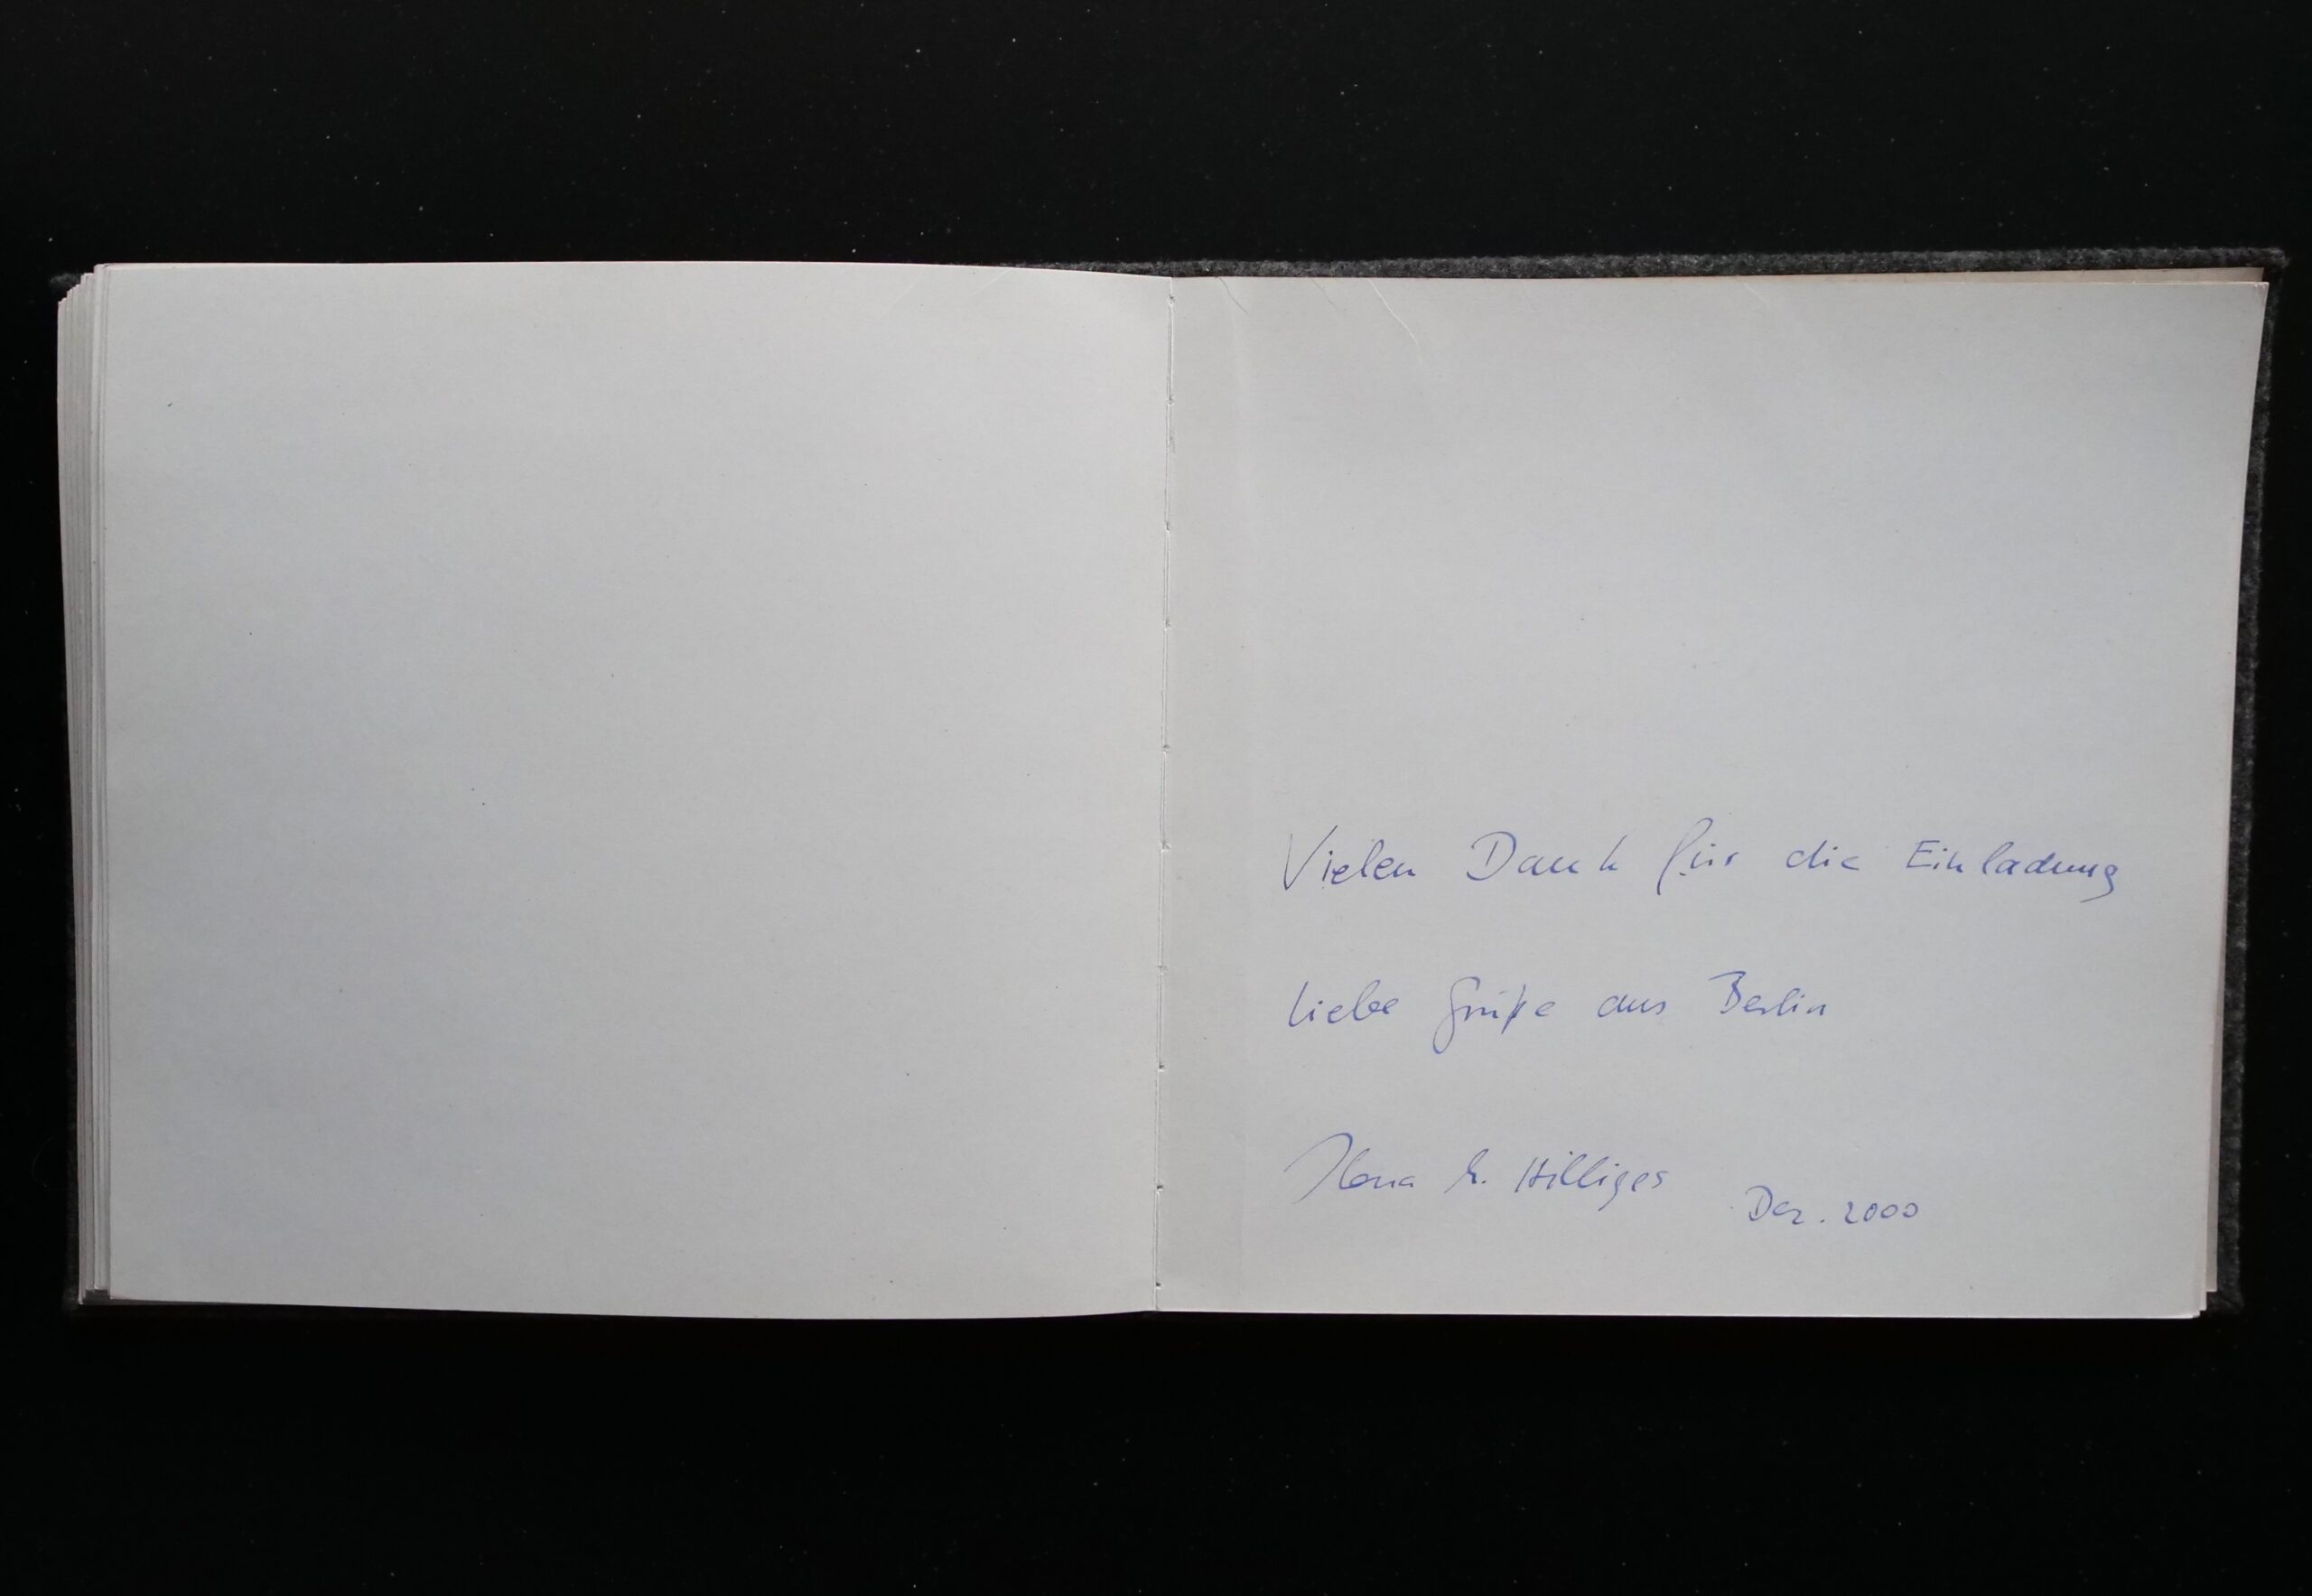 Vielen Dank für die Einladung
Liebe Grüße aus Berlin
Ilona M. Hilliges
Dez. 2000